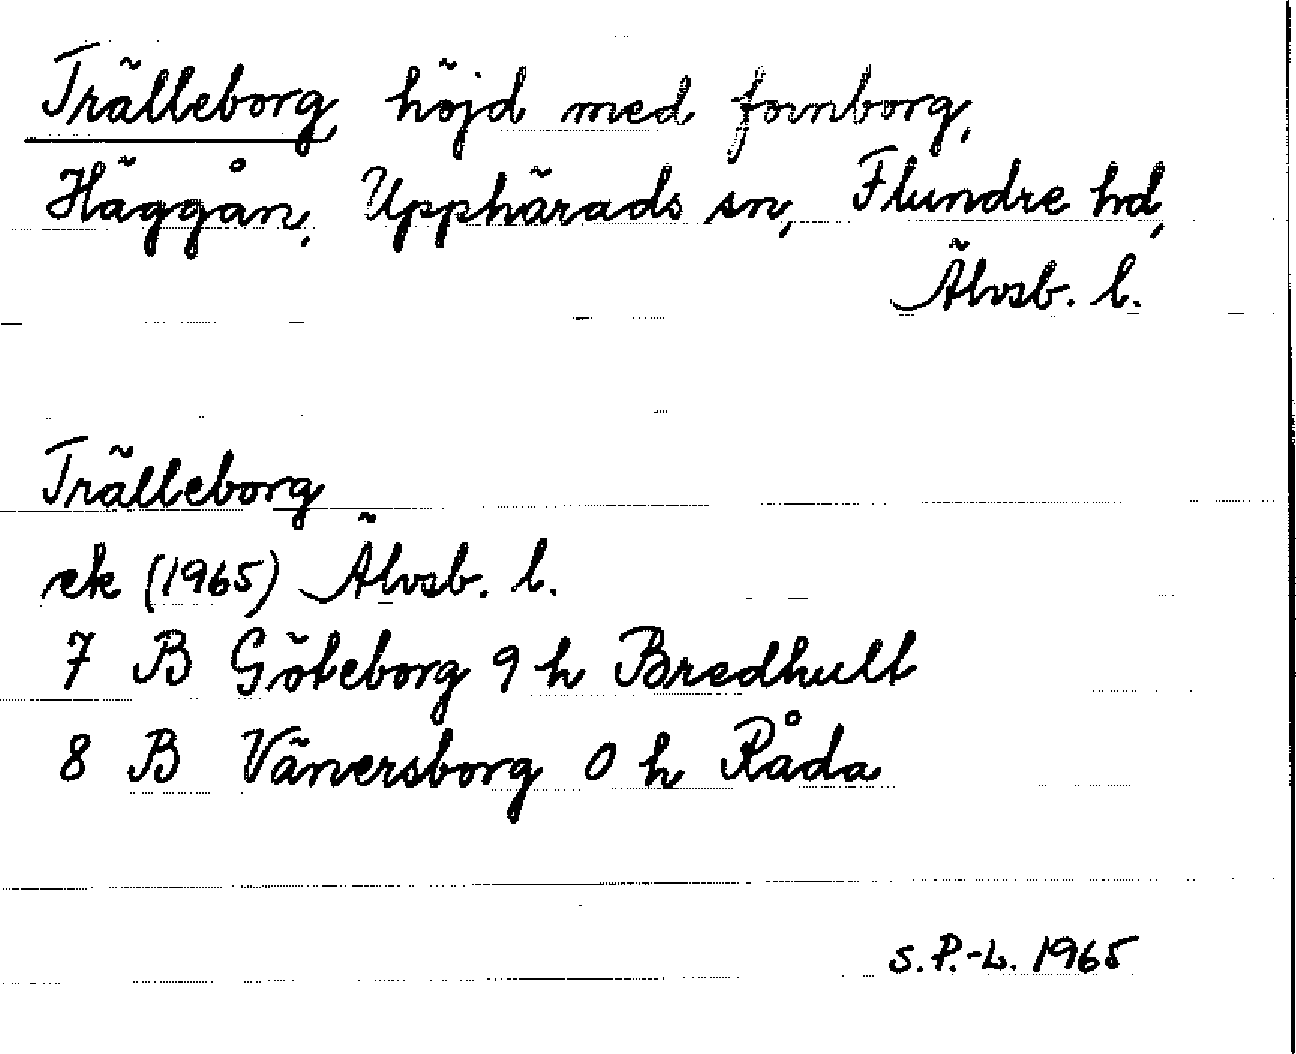 Trälleborg, höjd med fornborg,
Häggån, Upphärads sn, Flundre hd,
Älvsb. l.
Trälleborg
ek (1965) Älvsb. l.
7 B Göteborg 9 h Bredhult
8 B Vänersborg 0 h Råda
S.P.-L. 1965